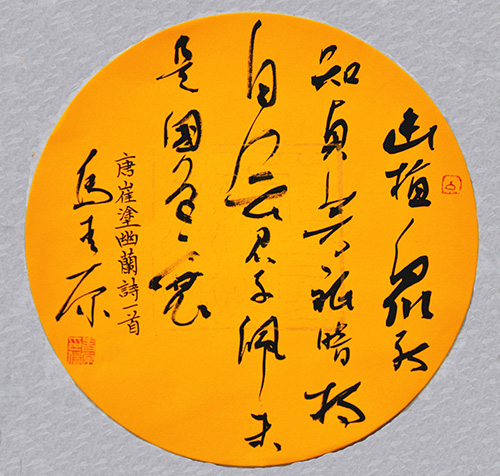 幽植眾能
知貞芳祗暗持
自無君子佩未
是國香衰
唐崔塗幽蘭詩一首